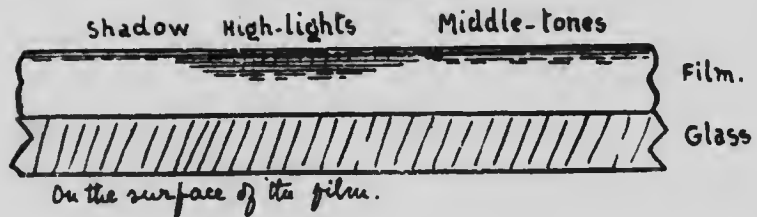 Shadow High-lights Middle-tones
Film.
Glass
On the surface of the film.